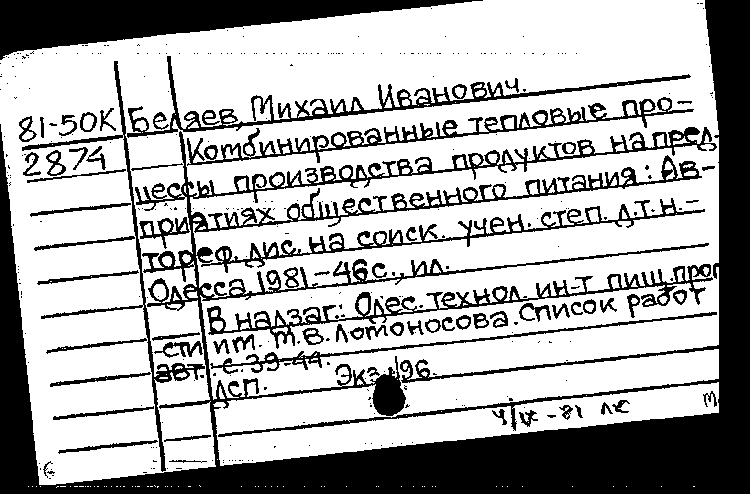 81-50К Беляев, Михаил Иванович.
2874 Комбинированные тепловые про-
цессы производства продуктов на пред-
приятиях общественного питания: Ав-
тореф. дис. на соиск. учен. степ. д.т.н.-
Одесса, 1981.-46с., ил.
В надзаг.: Одес. технол. ин-т пищ. про
сти им. М.В. Ломоносова. Список работ
авт.: с. 39-44.
ДСП. Экз. 96.
4/IX-81